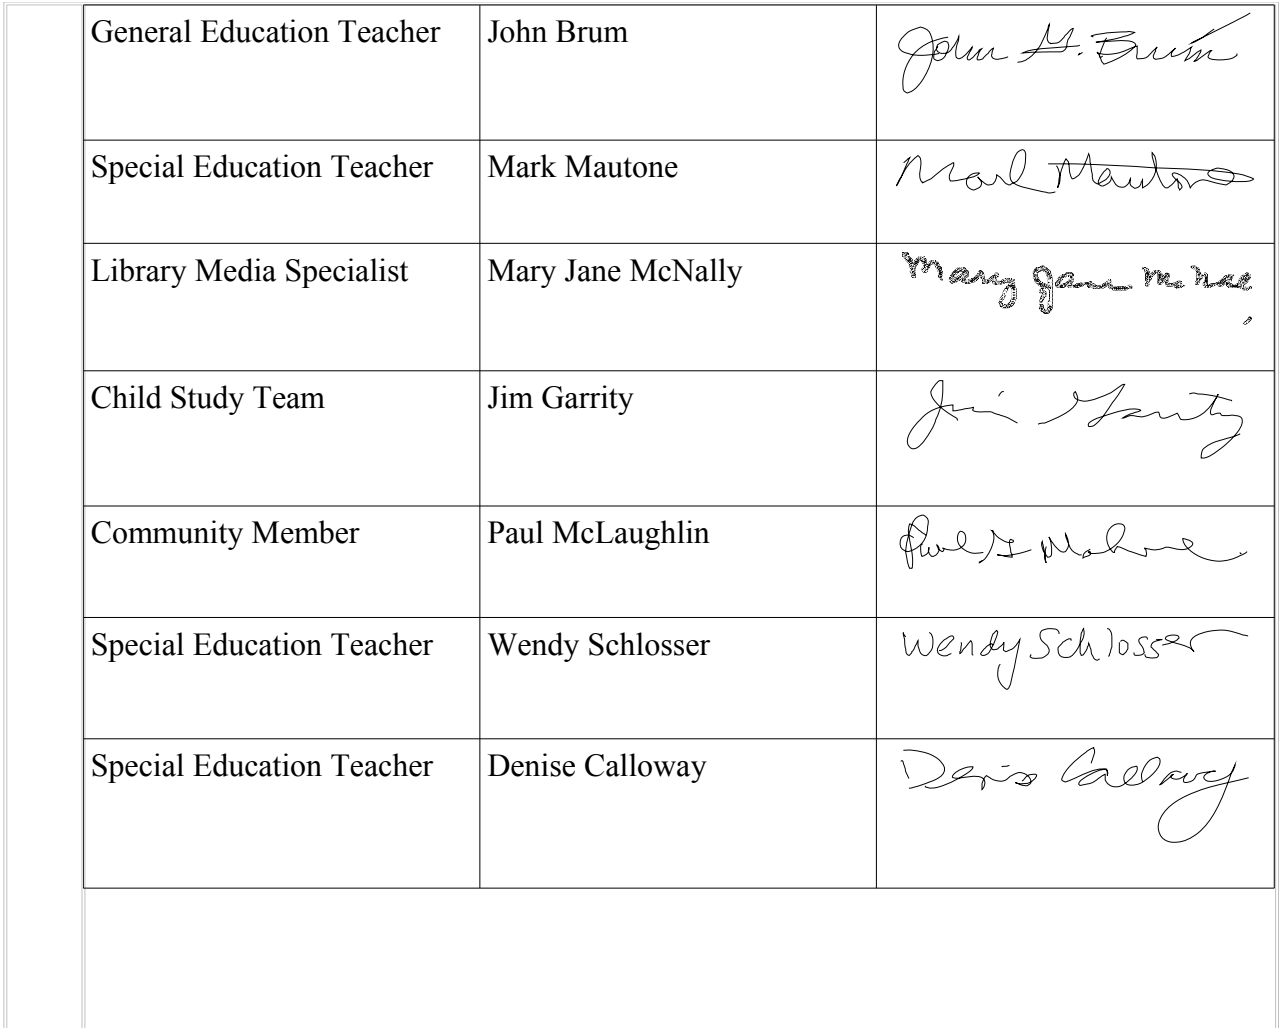 General Education Teacher John Brum John G. Brum
Special Education Teacher Mark Mautone Mark Mautone
Library Media Specialist Mary Jane McNally Mary Jane McNal
Child Study Team Jim Garrity Jim Garrity
Community Member Paul McLaughlin
Special Education Teacher Wendy Schlosser Wendy Schlosser
Special Education Teacher Denise Calloway Denise Calloway